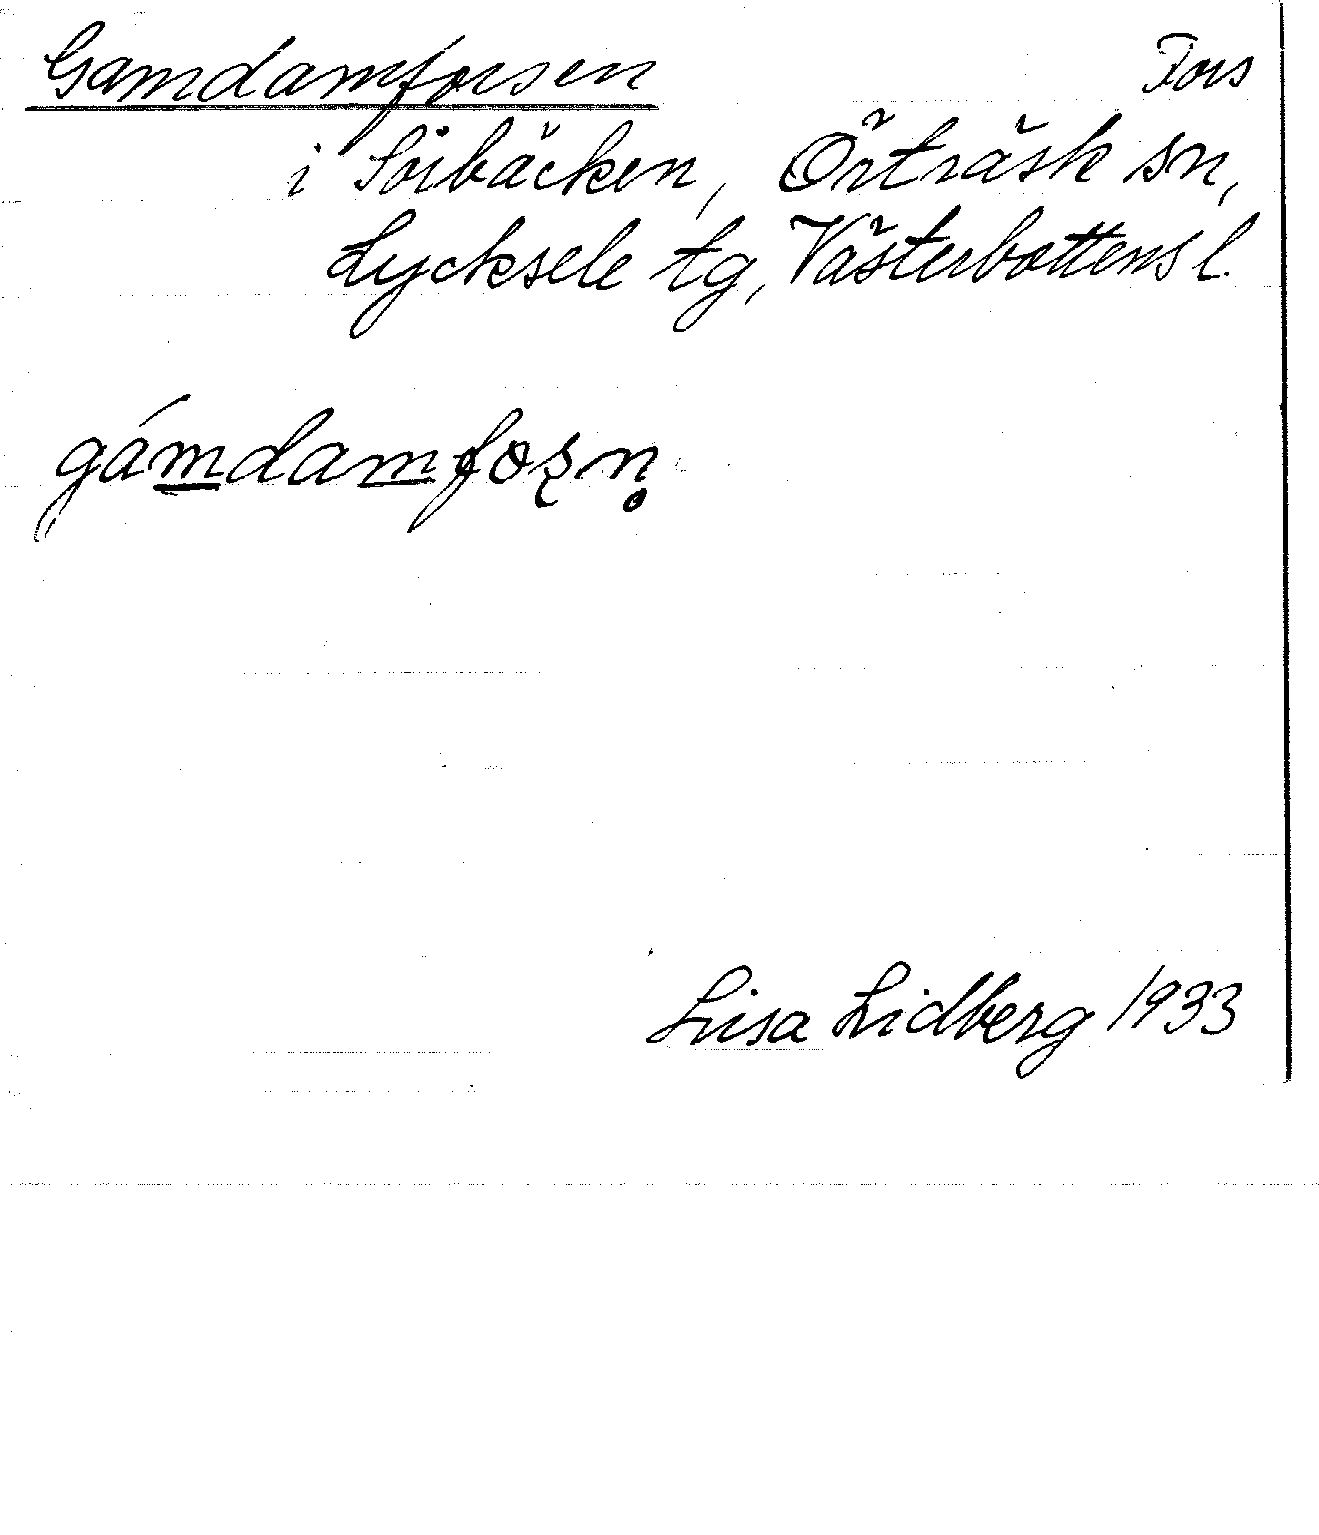 Gamdamforsen Fors
i Sörbäcken, Örträsk sn,
Lycksele tg, Västerbottens l.
gám̲dam̲foʂn̥
Lisa Lidberg 1933